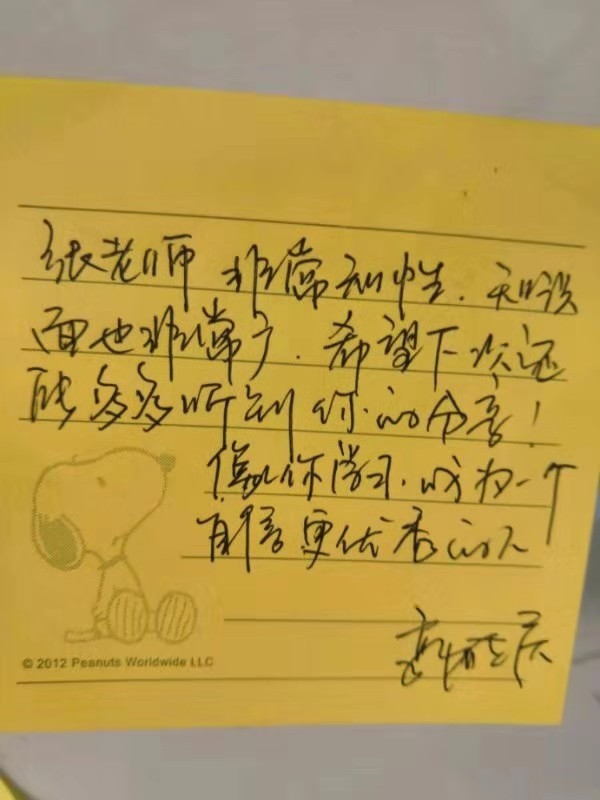 张老师 非常知性. 知识
面也非常广. 希望下次还
能多多听到你的分享!
像你学习. 成为一个
自信更优秀的人
© 2012 Peanuts Worldwide LLC